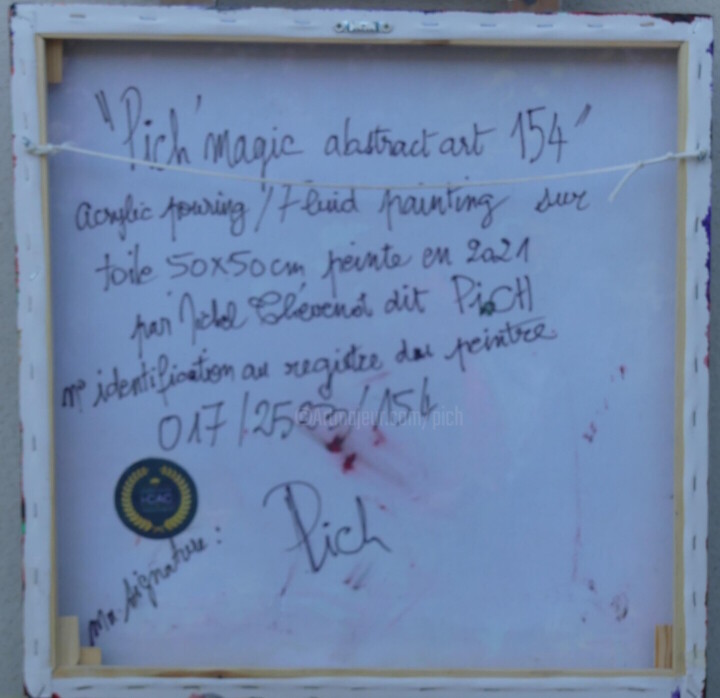 "Pich' magic abstract art 154"
acrylic pouring / Fluid painting sur
toile 50x50cm peinte en 2021
par Michel Thévenot dit PicH
n° identification au registre du peintre
017/ /154
©Artmajeur.com/pich
I-CAC
ma signature :
Pich